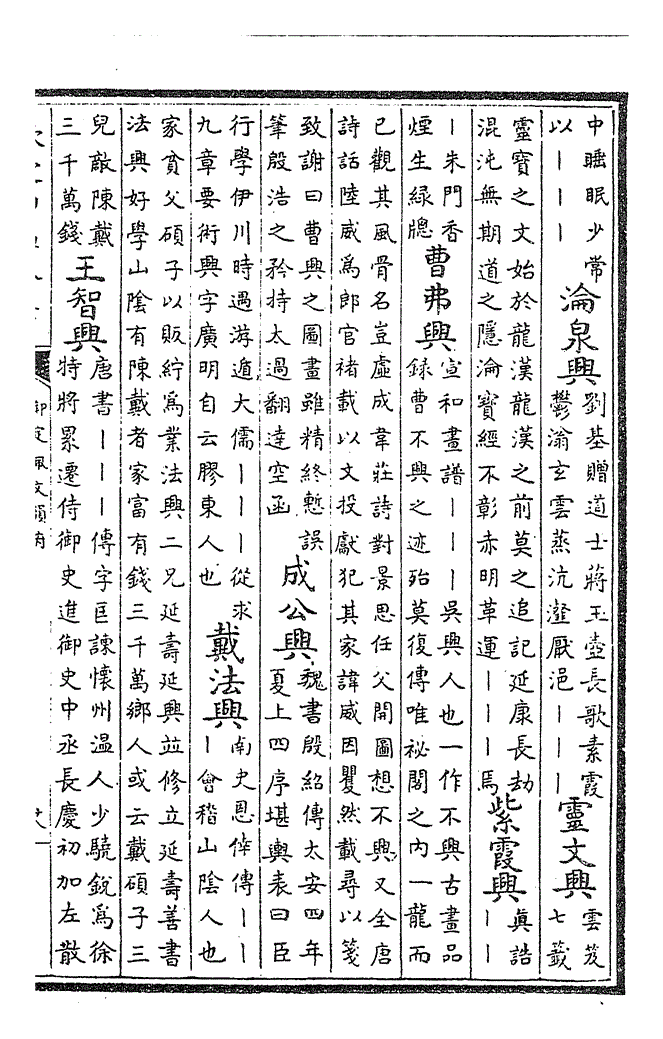 中睡眠少常
以｜｜｜
淪泉興
劉基贈道士蔣玉壺長歌素霞
鬱滃玄雲蒸沆瀣厭浥｜｜｜
靈文興
雲笈
七籖
靈寶之文始於龍漢龍漢之前莫之追記延康長劫
混沌無期道之隱淪寶經不彰赤明革運｜｜｜｜焉
紫霞興
真誥
｜｜
｜朱門香
煙生緑牕
曹弗興
宣和畫譜｜｜｜吳興人也一作不興古畫品
録曹不興之迹殆莫復傳唯祕閣之内一龍而
已觀其風骨名豈虛成韋莊詩對景思任父開圖想不興又全唐
詩話陸威爲郎官禇載以文投獻犯其家諱威因矍然載尋以箋
致謝曰曹興之圖畫雖精終慙誤
筆殷浩之矜持太過翻達空函
成公興
魏書殷紹傳太安四年
夏上四序堪輿表曰臣
行學伊川時遇游遁大儒｜｜｜從求
九章要術興字廣明自云膠東人也
戴法興
南史恩倖傳｜｜
｜會稽山陰人也
家貧父碩子以販紵爲業法興二兄延壽延興並修立延壽善書
法興好學山陰有陳戴者家富有錢三千萬鄉人或云戴碩子三
兒敵陳戴
三千萬錢
王智興
唐書｜｜｜傳字匡諫懷州溫人少驍銳爲徐
特將累遷侍御史進御史中丞長慶初加左散